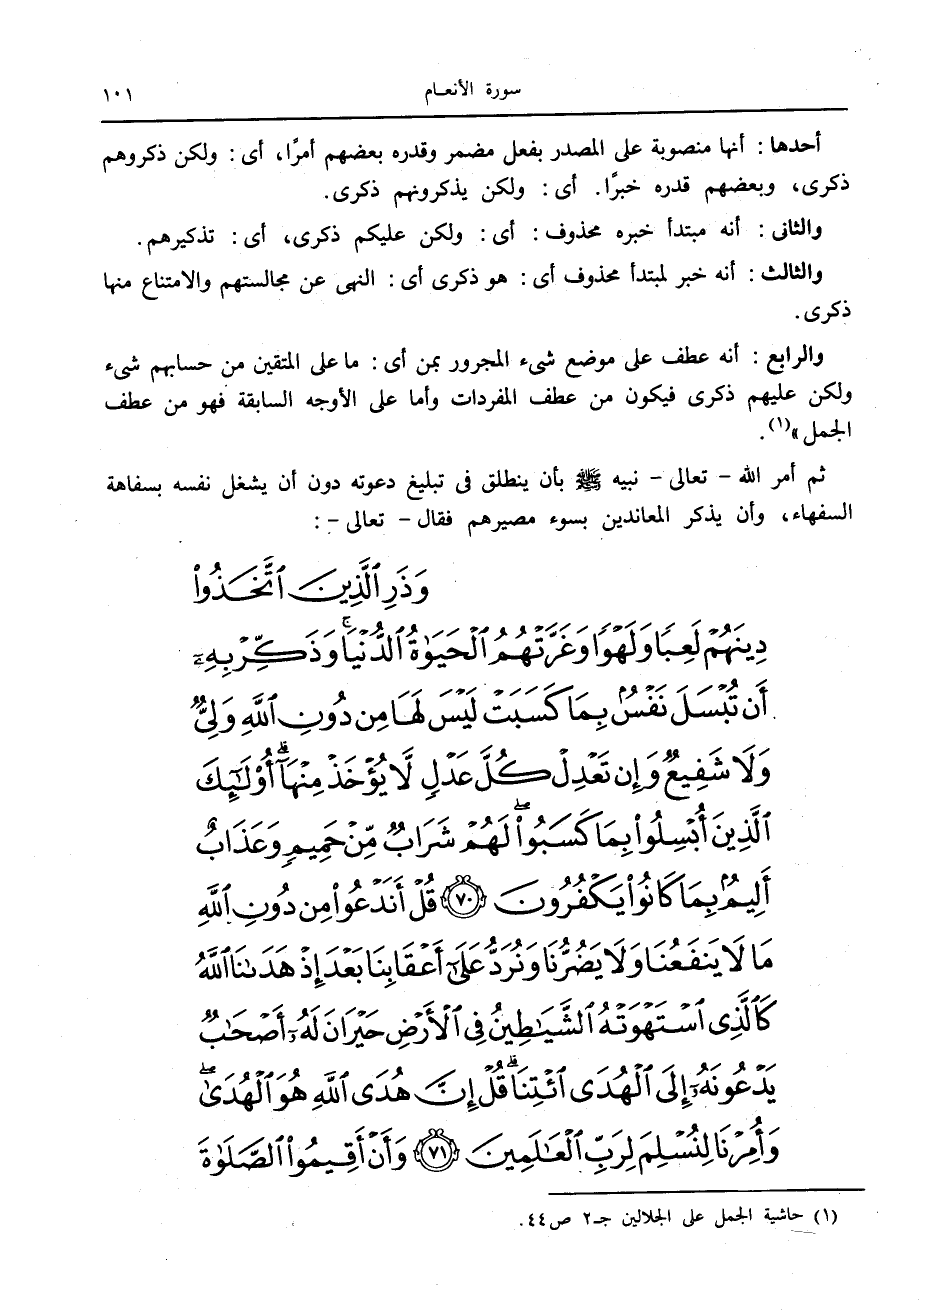 سورة الأنعـام
١٠١
أحدها : أنها منصوبة على المصدر بفعل مضمر وقدره بعضهم أمرًا، أى : ولكن ذكروهم
ذكرى، وبعضهم قدره خبرًا. أى : ولكن يذكرونهم ذكرى.
والثانى : أنه مبتدأ خبره محذوف : أى : ولكن عليكم ذكرى، أى : تذكيرهم.
والثالث : أنه خبر لمبتدأ محذوف أى : هو ذكرى أى : النهى عن مجالستهم والامتناع منها
ذكرى.
والرابع : أنه عطف على موضع شىء المجرور بمن أى : ما على المتقين من حسابهم شىء
ولكن عليهم ذكرى فيكون من عطف المفردات وأما على الأوجه السابقة فهو من عطف
الجمل»(١).
ثم أمر الله - تعالى - نبيه ﷺ بأن ينطلق فى تبليغ دعوته دون أن يشغل نفسه بسفاهة
السفهاء، وأن يذكر المعاندين بسوء مصيرهم فقال - تعالى - :
وَذَرِ ٱلَّذِينَ ٱتَّخَذُوا۟
دِينَهُمْ لَعِبًا وَلَهْوًا وَغَرَّتْهُمُ ٱلْحَيَوٰةُ ٱلدُّنْيَا ۚ وَذَكِّرْ بِهِۦٓ
أَن تُبْسَلَ نَفْسٌۢ بِمَا كَسَبَتْ لَيْسَ لَهَا مِن دُونِ ٱللَّهِ وَلِىٌّ
وَلَا شَفِيعٌ وَإِن تَعْدِلْ كُلَّ عَدْلٍ لَّا يُؤْخَذْ مِنْهَآ ۗ أُو۟لَـٰٓئِكَ
ٱلَّذِينَ أُبْسِلُوا۟ بِمَا كَسَبُوا۟ ۖ لَهُمْ شَرَابٌ مِّنْ حَمِيمٍ وَعَذَابٌ
أَلِيمٌۢ بِمَا كَانُوا۟ يَكْفُرُونَ ﴿٧٠﴾ قُلْ أَنَدْعُوا۟ مِن دُونِ ٱللَّهِ
مَا لَا يَنفَعُنَا وَلَا يَضُرُّنَا وَنُرَدُّ عَلَىٰٓ أَعْقَابِنَا بَعْدَ إِذْ هَدَىٰنَا ٱللَّهُ
كَٱلَّذِى ٱسْتَهْوَتْهُ ٱلشَّيَـٰطِينُ فِى ٱلْأَرْضِ حَيْرَانَ لَهُۥٓ أَصْحَـٰبٌ
يَدْعُونَهُۥٓ إِلَى ٱلْهُدَى ٱئْتِنَا ۗ قُلْ إِنَّ هُدَى ٱللَّهِ هُوَ ٱلْهُدَىٰ ۖ
وَأُمِرْنَا لِنُسْلِمَ لِرَبِّ ٱلْعَـٰلَمِينَ ﴿٧١﴾ وَأَنْ أَقِيمُوا۟ ٱلصَّلَوٰةَ
(١) حاشية الجمل على الجلالين جـ٢ ص٤٤.